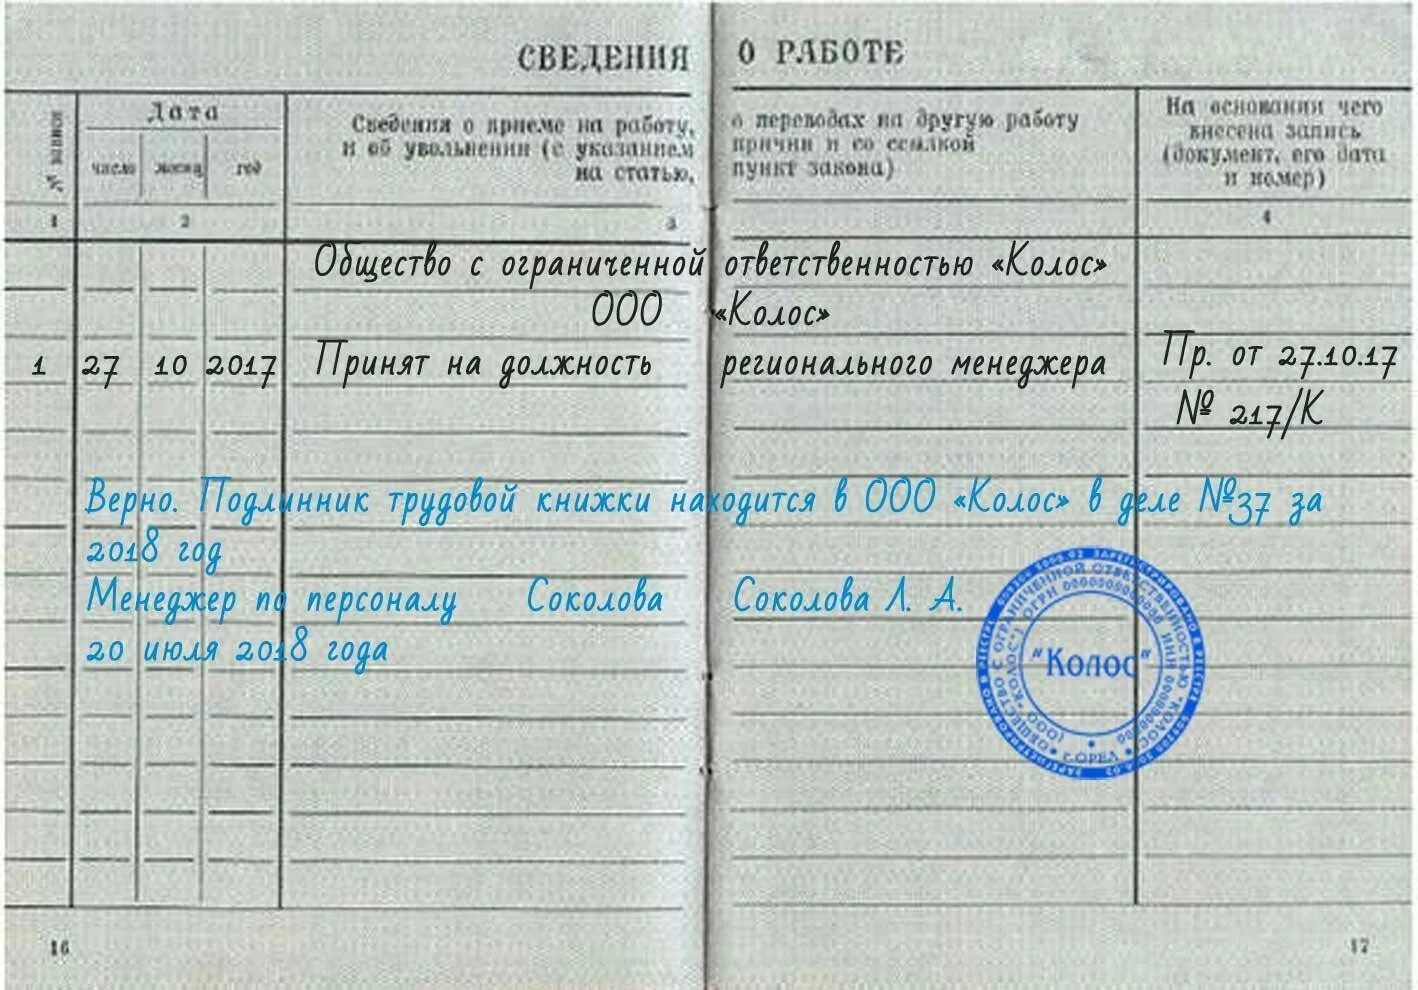 СВЕДЕНИЯ О РАБОТЕ
№ записи
Дата
число месяц год
Сведения о приеме на работу, о переводах на другую работу
и об увольнении (с указанием причин и со ссылкой
на статью, пункт закона)
На основании чего
внесена запись
(документ, его дата
и номер)
1 2 3 4
Общество с ограниченной ответственностью «Колос»
ООО «Колос»
1 27 10 2017 Принят на должность регионального менеджера Пр. от 27.10.17
№ 217/К
Верно. Подлинник трудовой книжки находится в ООО «Колос» в деле №37 за
2018 год
Менеджер по персоналу Соколова Соколова Л. А.
20 июля 2018 года
ЗАРЕГИСТРИРОВАНО В РЕЕСТРЕ
ОБЩЕСТВО С ОГРАНИЧЕННОЙ ОТВЕТСТВЕННОСТЬЮ "КОЛОС"
(ООО "КОЛОС") ОГРН ИНН
"Колос"
г.ОРЕЛ
16 17